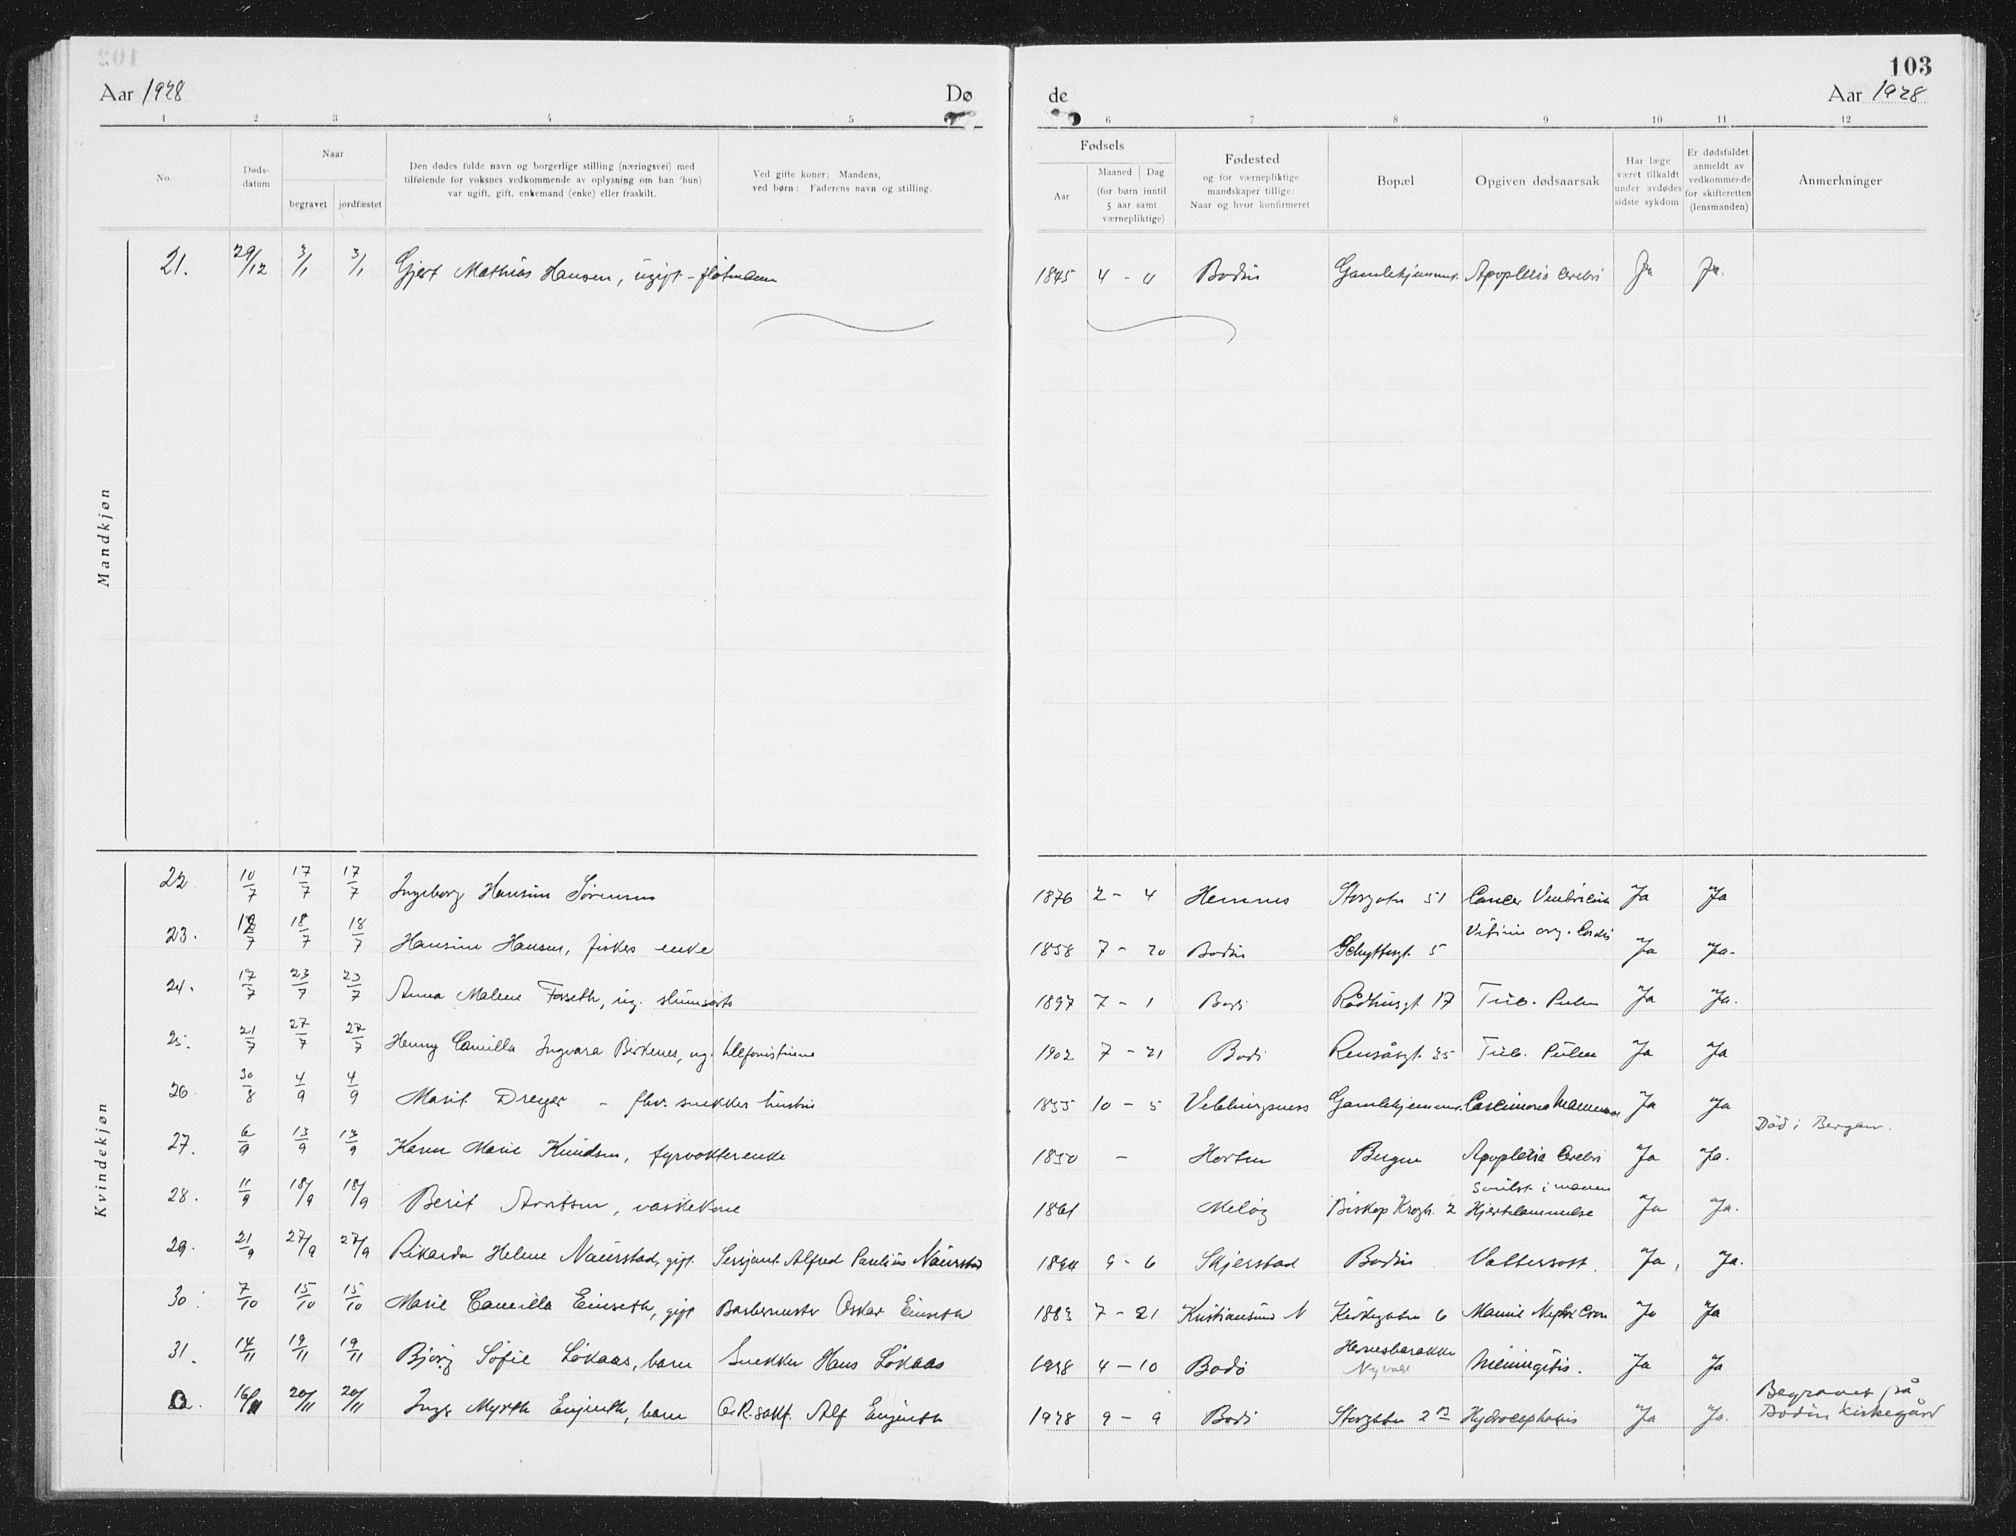 103
Aar 1928 Døde Aar 1928
1 2 3 4 5 6 7 8 9 10 11 12
No.
Døds-
datum
Naar
begravet jordfæstet
Den dødes fulde navn og borgerlige stilling (næringsvei) med
tilføiende for voksnes vedkommende av oplysning om han (hun)
var ugift, gift, enkemand (enke) eller fraskilt.
Ved gifte koner; Mandens,
ved børn: Faderens navn og stilling.
Fødsels
Aar
Maaned Dag
(for børn inntil
5 aar samt
værnepliktige)
Fødested
og for værnepliktige
mandskaper tillige:
Naar og hvor konfirmeret
Bopæl
Opgiven dødsaarsak
Har læge
været tilkaldt
under avdødes
sidste sykdom
Er dødsfaldet
anmeldt av
vedkommende
for skifteretten
(lensmanden)
Anmerkninger
Mandkjøn
21. 29/12 3/1 3/1 Gjert Mathias Hansen, ugift - 1845 4 - 4 Bodin Gamlehjemmet. Apoplexia Cerebri Ja Ja.
Kvindekjøn
22. 10/7 17/7 17/7 Ingeborg Hansine Sørensen 1876 2 - 4 Hemnes Storgatn 51 Cancer Ventriculi Ja Ja
23. 12/7 18/7 18/7 Hansine Hansen, fiskers enke 1858 7 - 20 Bodin Schyttesgt. 5 Vitium org. Cordis Ja Ja.
24. 17/7 23/7 23/7 Anna Malene Forseth, ug. 1897 7 - 1 Bodø Rådhusgt. 17 Tub. Pulm Ja Ja.
25. 21/7 27/7 27/7 Henny Camilla Ingvara Birkenes, ug. telefonistinne 1902 7 - 21 Bodø Rensåsgt. 35 Tub. Pulm Ja Ja
26. 30/8 4/9 4/9 Marit Dreyer - fhv. snekker hustru 1855 10 - 5 Veblungsnes Gamlehjemmet. Carcinoma Mammae Ja Ja
27. 6/9 13/9 13/9 Karen Marie Knudsen, fyrvokterenke 1850 - Horten Bergen Apoplexia Cerebri Ja Ja. Død i Bergen.
28. 11/9 18/9 18/9 Berit Arntsen, vaskekone 1861 Meløy Biskop Kroghs. 2 Svulst i maven
Hjertelammelse Ja Ja.
29. 21/9 27/9 27/9 Rikarda Helene Naurstad, gift. Sersjant Alfred Paulius Naurstad 1894 9 - 6 Skjerstad Bodin Vattersott. Ja, Ja.
30. 7/10 15/10 15/10 Marie Camilla Einseth, gift Barbermester Oskar Einseth 1883 7 - 21 Kristiansund N Kirkegatn 6 Ja Ja
31. 14/11 19/11 19/11 Bjørg Sofie Løkaas, barn Snekker Hans Løkaas 1928 4 - 10 Bodø Havnebarakke
Nyvold Meningitis. Ja Ja
16/11 20/11 20/11 Inger Myrth Engseth, barn Alf Engseth 1928 9 - 9 Bodø Storgaten 2 B Hydrocephalus Ja Ja. Begravet på
Bodin Kirkegård